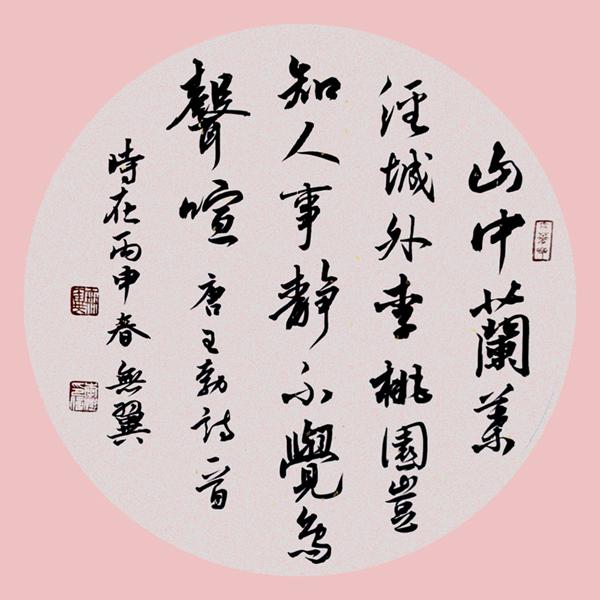 山中蘭葉
徑城外李桃園豈
知人事靜不覺鳥
聲喧 唐王勃詩一首
時在丙申春無翼